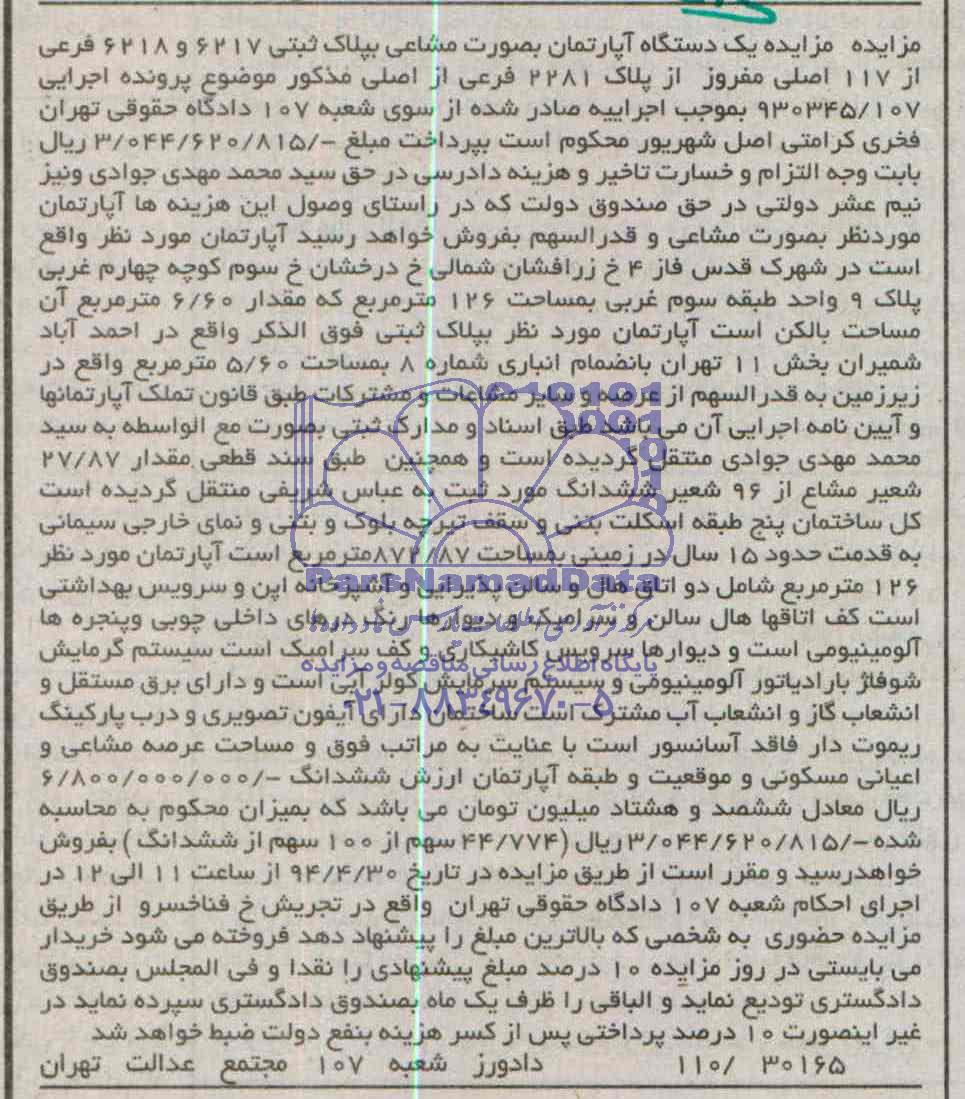 مزایده مزایده یک دستگاه آپارتمان بصورت مشاعی بپلاک ثبتی ۶۲۱۷ و ۶۲۱۸ فرعی
از ۱۱۷ اصلی مفروز از پلاک ۲۲۸۱ فرعی از اصلی مذکور موضوع پرونده اجرایی
۹۳۰۳۴۵/۱۰۷ بموجب اجراییه صادر شده از سوی شعبه ۱۰۷ دادگاه حقوقی تهران
فخری کرامتی اصل شهریور محکوم است بپرداخت مبلغ -/۳/۰۴۴/۶۲۰/۸۱۵ ریال
بابت وجه التزام و خسارت تاخیر و هزینه دادرسی در حق سید محمد مهدی جوادی ونیز
نیم عشر دولتی در حق صندوق دولت که در راستای وصول این هزینه ها آپارتمان
موردنظر بصورت مشاعی و قدرالسهم بفروش خواهد رسید آپارتمان مورد نظر واقع
است در شهرک قدس فاز ۴ خ زرافشان شمالی خ درخشان خ سوم کوچه چهارم غربی
پلاک ۹ واحد طبقه سوم غربی بمساحت ۱۲۶ مترمربع که مقدار ۶/۶۰ مترمربع آن
مساحت بالکن است آپارتمان مورد نظر بپلاک ثبتی فوق الذکر واقع در احمد آباد
شمیران بخش ۱۱ تهران بانضمام انباری شماره ۸ بمساحت ۵/۶۰ مترمربع واقع در
زیرزمین به قدرالسهم از عرصه و سایر مشاعات و مشترکات طبق قانون تملک آپارتمانها
و آیین نامه اجرایی آن می باشد طبق اسناد و مدارک ثبتی بصورت مع الواسطه به سید
محمد مهدی جوادی منتقل گردیده است و همچنین طبق سند قطعی مقدار ۲۷/۸۷
شعیر مشاع از ۹۶ شعیر ششدانگ مورد ثبت به عباس شریفی منتقل گردیده است
کل ساختمان پنج طبقه اسکلت بتنی و سقف تیرچه بلوک و بتنی و نمای خارجی سیمانی
به قدمت حدود ۱۵ سال در زمینی بمساحت ۸۷۲/۸۷مترمربع است آپارتمان مورد نظر
۱۲۶ مترمربع شامل دو اتاق هال و سالن پذیرایی و آشپزخانه اپن و سرویس بهداشتی
است کف اتاقها هال سالن و سرامیک و دیوارها رنگ درهای داخلی چوبی وپنجره ها
آلومینیومی است و دیوارها سرویس کاشیکاری و کف سرامیک است سیستم گرمایش
شوفاژ بارادیاتور آلومینیومی و سیستم سرمایش کولر آبی است و دارای برق مستقل و
انشعاب گاز و انشعاب آب مشترک است ساختمان دارای آیفون تصویری و درب پارکینگ
ریموت دار فاقد آسانسور است با عنایت به مراتب فوق و مساحت عرصه مشاعی و
اعیانی مسکونی و موقعیت و طبقه آپارتمان ارزش ششدانگ -/۶/۸۰۰/۰۰۰/۰۰۰
ریال معادل ششصد و هشتاد میلیون تومان می باشد که بمیزان محکوم به محاسبه
شده -/۳/۰۴۴/۶۲۰/۸۱۵ ریال (۴۴/۷۷۴ سهم از ۱۰۰ سهم از ششدانگ) بفروش
خواهدرسید و مقرر است از طریق مزایده در تاریخ ۹۴/۴/۳۰ از ساعت ۱۱ الی ۱۲ در
اجرای احکام شعبه ۱۰۷ دادگاه حقوقی تهران واقع در تجریش خ فناخسرو از طریق
مزایده حضوری به شخصی که بالاترین مبلغ را پیشنهاد دهد فروخته می شود خریدار
می بایستی در روز مزایده ۱۰ درصد مبلغ پیشنهادی را نقدا و فی المجلس بصندوق
دادگستری تودیع نماید و الباقی را ظرف یک ماه بصندوق دادگستری سپرده نماید در
غیر اینصورت ۱۰ درصد پرداختی پس از کسر هزینه بنفع دولت ضبط خواهد شد
۱۱۰/ ۳۰۱۶۵ دادورز شعبه ۱۰۷ مجتمع عدالت تهران
ParsNamadData
پایگاه اطلاع رسانی مناقصه و مزایده
۰۲۱-۸۸۳۴۹۶۷۰-۵